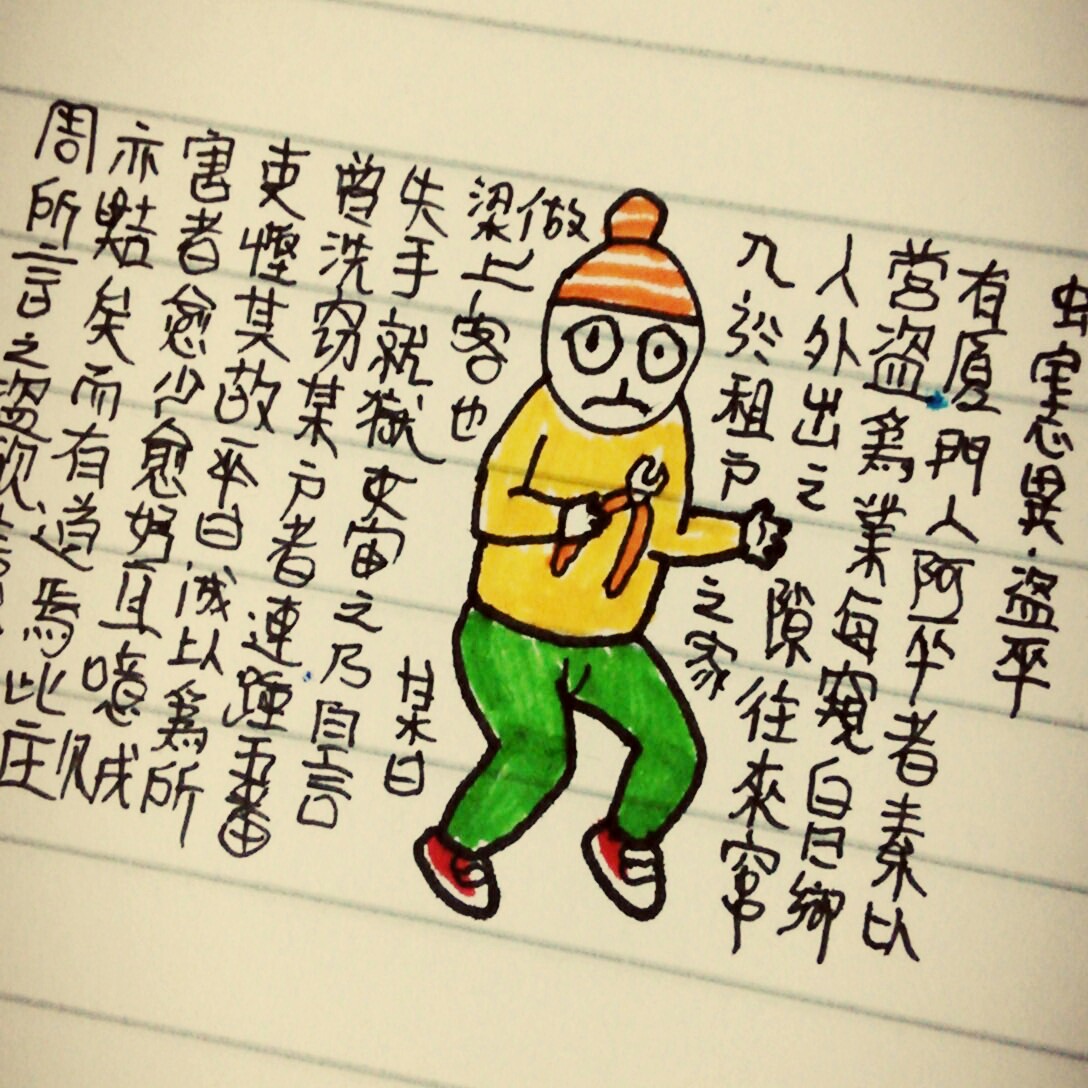 虫室志異.盜平
有廈門人阿平者素以
營盜爲業每窺鄉
人外出之隙往來穿
入於租戶之家
做
梁上客也某日
失手就獄之乃自言
曾洗窃某戶者連踵五番
吏其故平曰誠以爲所
害者愈少愈好耳噫賊
亦黠矣而有道焉此庄
周所言之盜歟